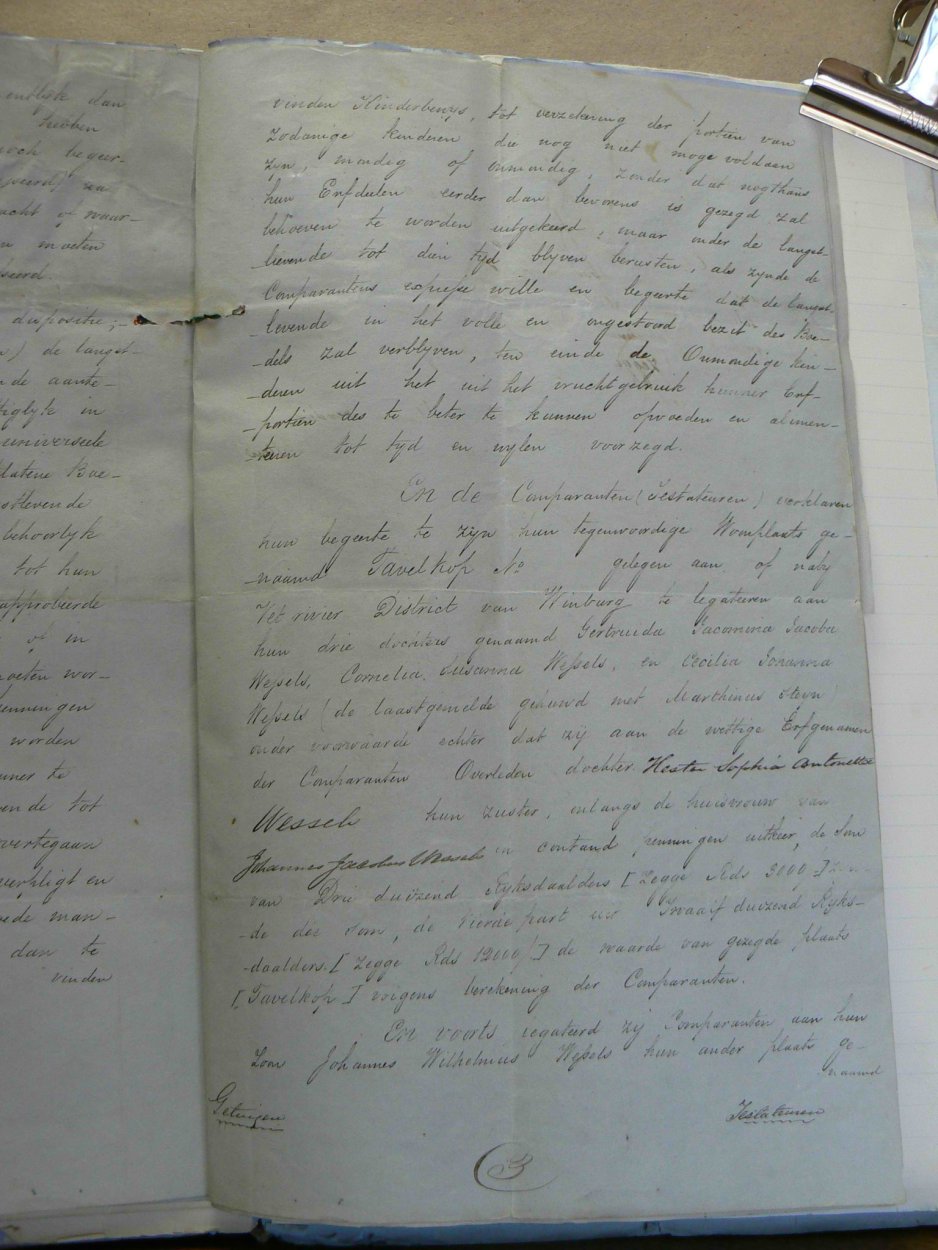 entlyk dan
hebben
noch begeer-
za
acht of waar-
n moeten
seerd.
dispositie;-
de langst-
nde aante-
tiglyk in
universeele
latene Boe-
stlevende
behoorlyk
tot hun
approbeerde
of in
moeten wor-
penningen
worden
nner te
ende tot
overtegaan
verpligt en
oede man-
dan te
vinden
vinden Kinderbewys, tot verzekering der portien van
zodanige kinderen die nog niet moge voldaan
zyn, mondig of onmondig, zonder dat nogthans
hun Erfdeelen eerder dan bevorens is gezegd zal
behoeven te worden uitgekeerd, maar onder de langst-
levende tot dien tyd blyven berusten, als zynde de
Comparantens expresse wille en begeerte dat de langst
levende in het volle en ongestoord bezit des Boe-
-dels zal verblyven, ten einde de Onmondige kin-
-deren uit het uit het vruchtgebruik hunner Erf-
-portien des te beter te kunnen opvoeden en alimen-
-teren tot tyd en wylen voorzegd.
En de Comparanten (Testateuren) verklaren
hun begeerte te zyn hun tegenwoordige Woonplaats ge-
naamd Tavelkop No gelegen aan of naby
Vet rivier District van Winburg te legateeren aan
hun drie dochters genaamd Gertruida Jacomina Jacoba
Wessels, Cornelia Susanna Wessels, en Cecilia Johanna
Wessels (de laastgemelde gehuwd met Marthinus Steyn)
onder voorwaarde echter dat zij aan de wettige Erfgenamen
der Comparanten Overleden dochter Hester Sophia Antonetta
Wessels hun zuster, onlangs de huisvrouw van
Johannes Jacobus Wessels in contand penningen uitkeer, de Som
van Drie duizend Ryksdaalders [Zegge Rds 3000] zyn-
-de die som, de vierde part uit Twaalf duizend Ryks-
-daalders [Zegge Rds 12000/] de waarde van gezegde plaats
[Tavelkop] volgens berekening der Comparanten.
En voorts legateerd zij Comparanten aan hun
Zoon Johannes Wilhelmus Wessels hun ander plaats ge-
naamd
Getuigen
Testateuren
3